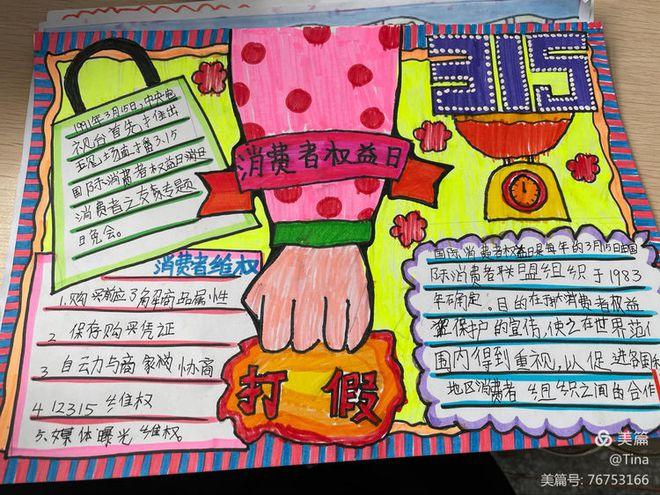 315
消费者权益日
1991年3月15日,中央电
视台首先推出
现场直播3.15
国际消费者权益日消
消费者之友专题
日晚会。
消费者维权
1.购买前应了解商品属性
2 保存购买凭证
3 自动与商家协商
4 12315维权
5.媒体曝光维权。
打假
国际消费者权益日是每年的3月15日由国
际消费者联盟组织于1983
年确定。目的在扩大消费者权益
保护的宣传,使之在世界范
围内得到重视,以促进各国和
地区消费者组织之间的合作
美篇
@Tina
美篇号: 76753166